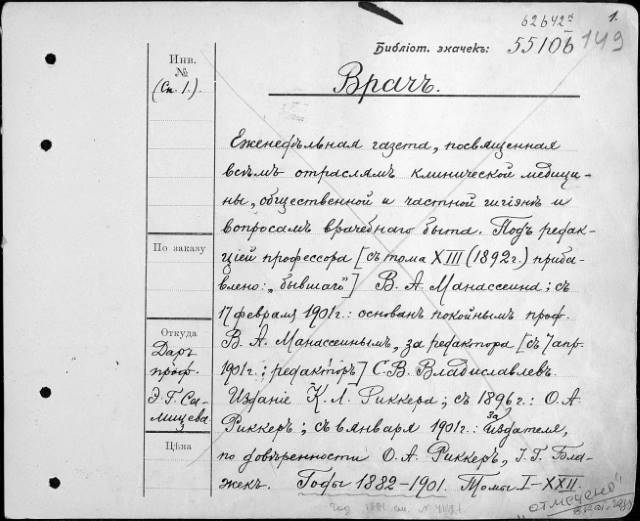 62642ª 1.
Библіот. значекъ: 5510б 149
Врачъ.
Инв.
№
(Сп. 1.).
По заказу
Откуда
Даръ
проф.
Э. Г. Са-
лищева
Цѣна
Еженедѣльная газета, посвященная
всѣмъ отраслямъ клинической медици-
ны, общественной и частной гигіенѣ и
вопросамъ врачебнаго быта. Подъ редак-
ціей профессора [съ тома XIII (1892г.) приба-
влено: „бывшаго”] В. А. Манассеина; съ
17 февраля 1901г.: основанъ покойнымъ проф.
В. А. Манассеинымъ, за редактора [съ 7 апр.
1901г.: редакторъ] С. В. Владиславлевъ.
Изданіе К. Л. Риккера; съ 1896г.: О. А.
Риккеръ; съ 6 января 1901г.: за издателя,
по довѣренности О. А. Риккеръ, І. Г. Бла-
жекъ. Годы 1882–1901. Томы I–XXII.
Год 1881 см. №
„отмечено”